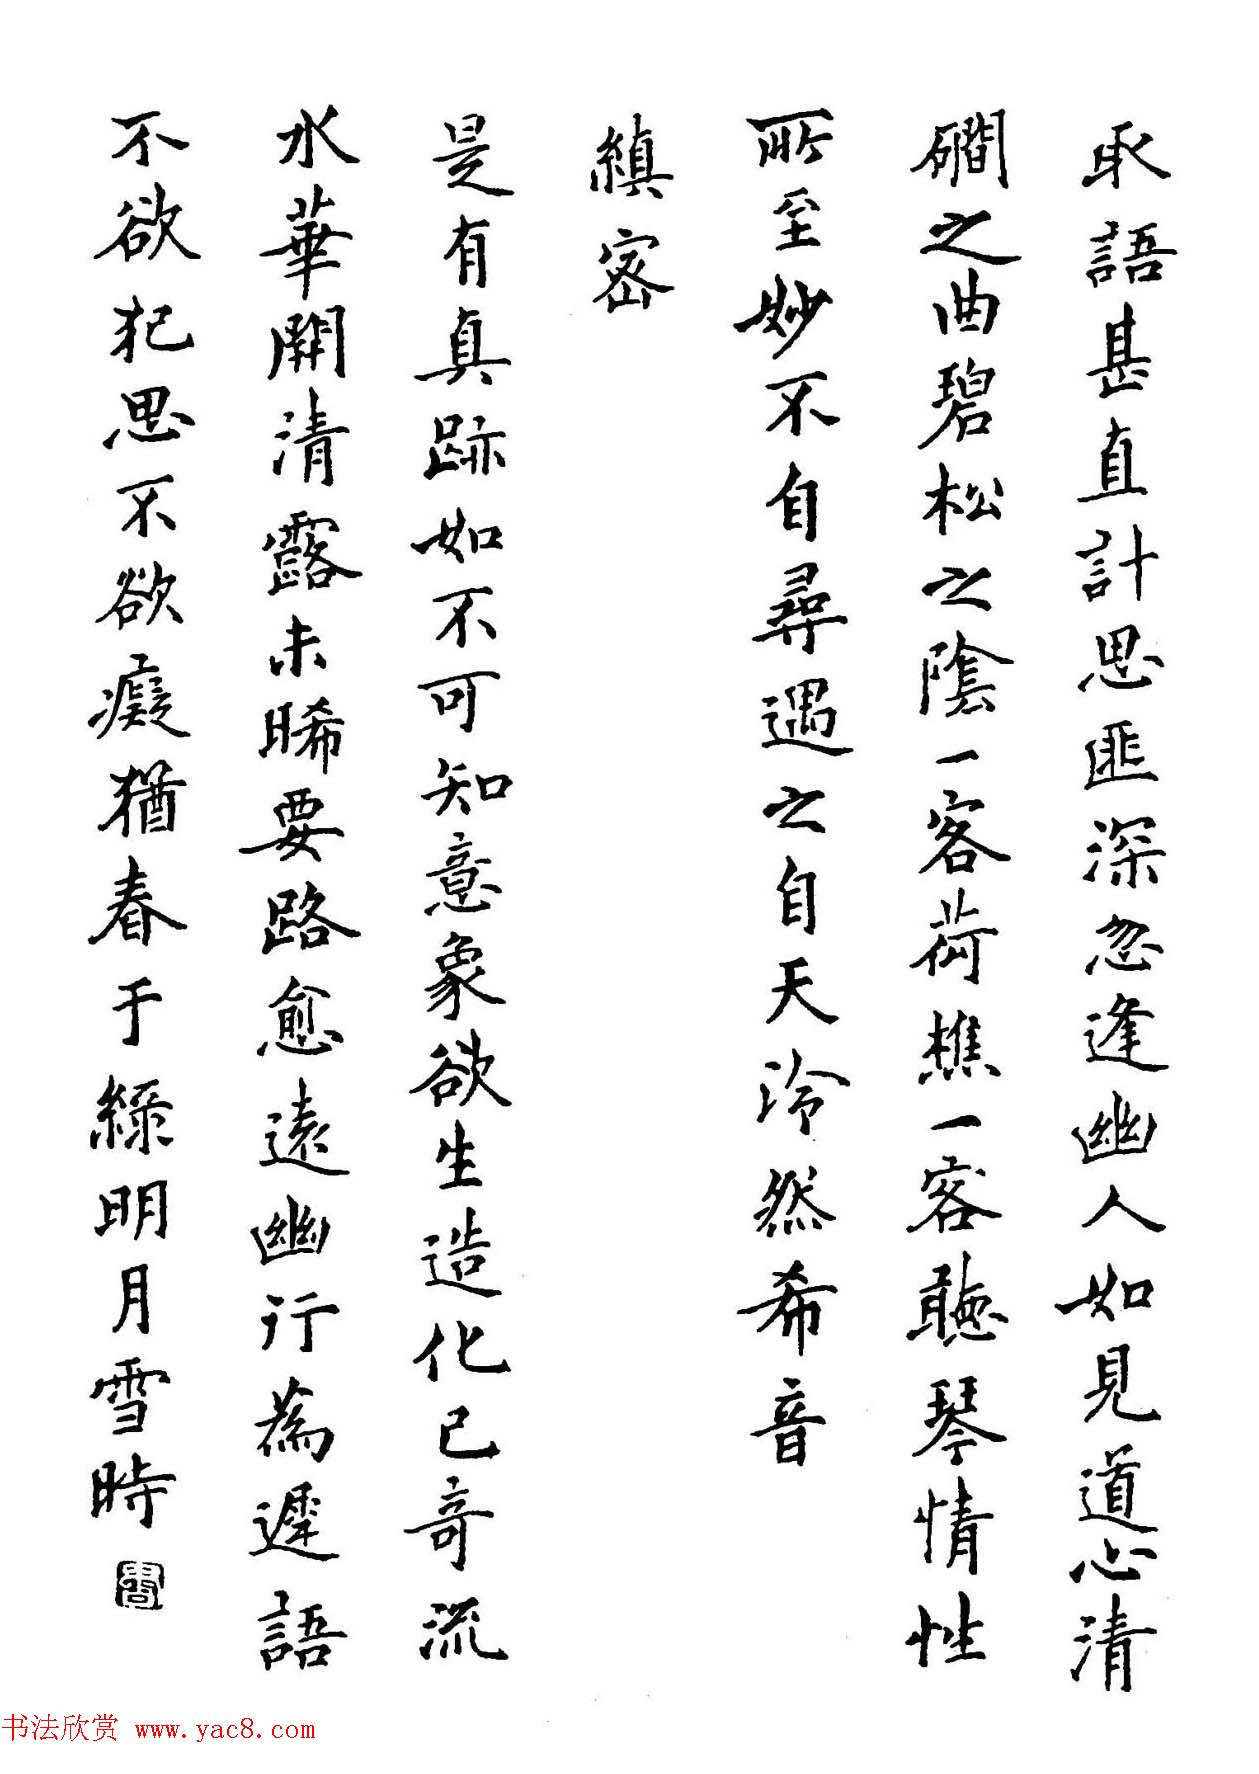 取語甚直計思匪深忽逢幽人如見道心清
磵之曲碧松之陰一客荷樵一客聽琴情性
所至妙不自尋遇之自天泠然希音
縝密
是有真跡如不可知意象欲生造化已奇流
水華開清露未晞要路愈遠幽行為遲語
不欲犯思不欲癡猶春于綠明月雪時
书法欣赏 www.yac8.com